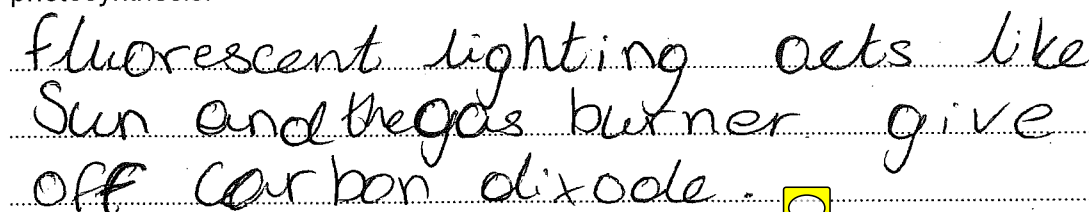 photosynthesis.
fluorescent lighting acts like
Sun and the gas burner give
off carbon dixode.